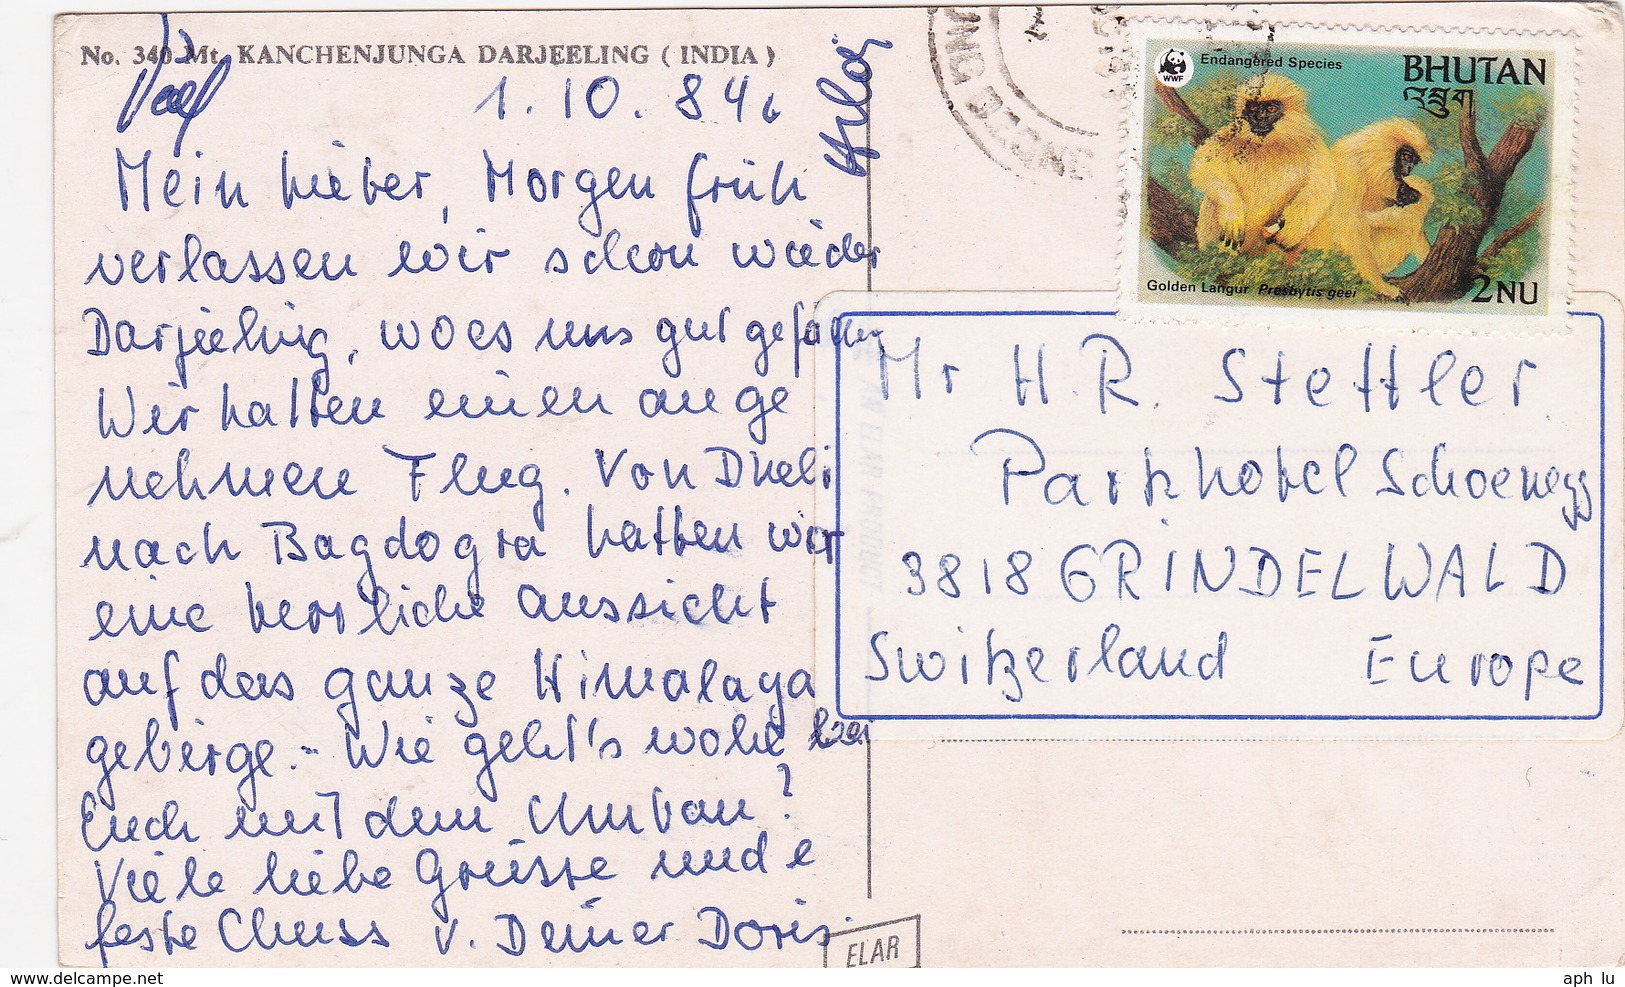 No. 340 Mt. KANCHENJUNGA DARJEELING ( INDIA )
1. 10. 84.
Mein lieber, Morgen früh
verlassen wir schon wieder
Darjeeling, wo es uns gut gefallen
Wir hatten einen ange
nehmen Flug. Von Dheli
nach Bagdogra hatten wir
eine herrliche Aussicht
auf das ganze Himalaya
gebirge. - Wie geht's wohl bei
Euch mit dem Umbau?
Viele liebe Grüsse und e
feste Chuss v. Deiner Doris.
WWF
Endangered Species
BHUTAN
འབྲུག
Golden Langur Presbytis geei
2NU
Mr H. R. Stettler
Parkhotel Schoenegg
3818 GRINDELWALD
Switzerland Europe
ELAR
aph lu